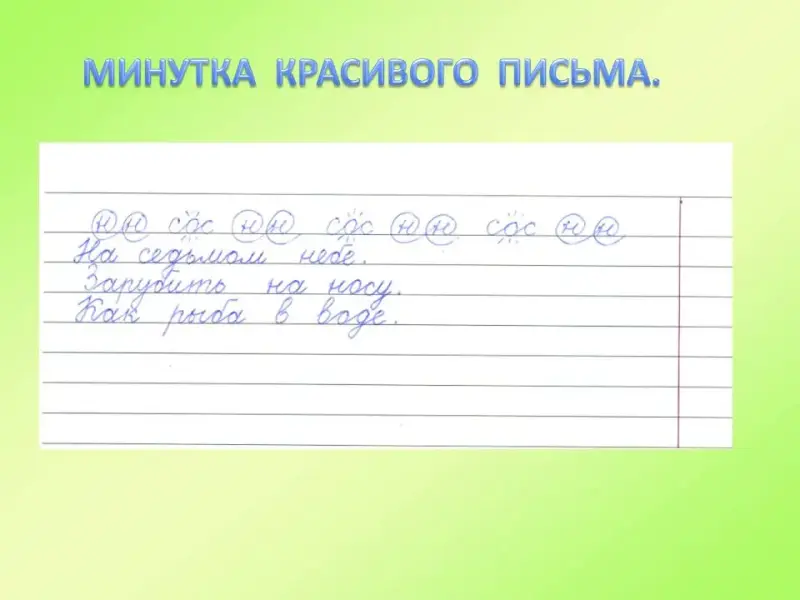 МИНУТКА КРАСИВОГО ПИСЬМА.
н н с о с н н с о с н н с о с н н
На седьмом небе.
Зарубить на носу.
Как рыба в воде.